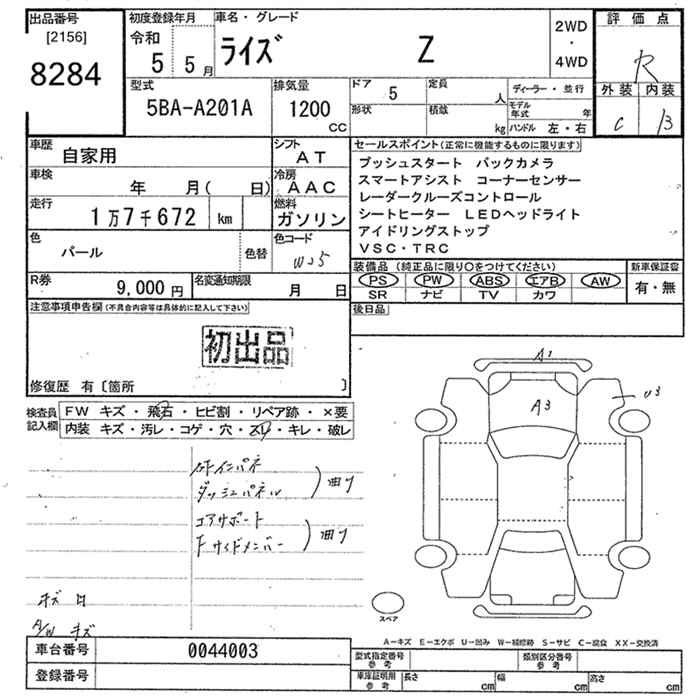 出品番号
[2156]
8284
初度登録年月
令和
5 5月
車名・グレード
ライズ Z
2WD
・
4WD
評価点
R
外装 内装
C B
型式
5BA-A201A
排気量
1200
CC
ドア 5
定員 人
形状
積載 kg
ディーラー・並行
モデル年式 年
ハンドル 左・右
車歴
自家用
シフト
AT
車検
年 月( 日)
冷房
AAC
走行
1万7千672 km
燃料
ガソリン
色
パール
色替
色コード
W25
R券
9,000円
名変通知期限
月 日
セールスポイント(正常に機能するものに限ります)
プッシュスタート バックカメラ
スマートアシスト コーナーセンサー
レーダークルーズコントロール
シートヒーター LEDヘッドライト
アイドリングストップ
VSC・TRC
装備品(純正品に限り○をつけてください)
PS PW ABS エアB AW
SR ナビ TV カワ
新車保証書
有・無
後日品
注意事項申告欄(不具合内容等は具体的に記入して下さい)
初出品
修復歴 有〔箇所 〕
検査員記入欄
FW キズ・飛石・ヒビ割・リペア跡・×要
内装 キズ・汚レ・コゲ・穴・スレ・キレ・破レ
ダッシュパネル
曲り
コアサポート
Fサイドメンバー
曲り
A/W キズ
A1
A3
U3
スペア
A-キズ E-エクボ U-凹み W-補修跡 S-サビ C-腐食 XX-交換済
車台番号
0044003
登録番号
型式指定番号
参考
類別区分番号
参考
車庫証明用
参考
長さ cm
幅 cm
高さ cm